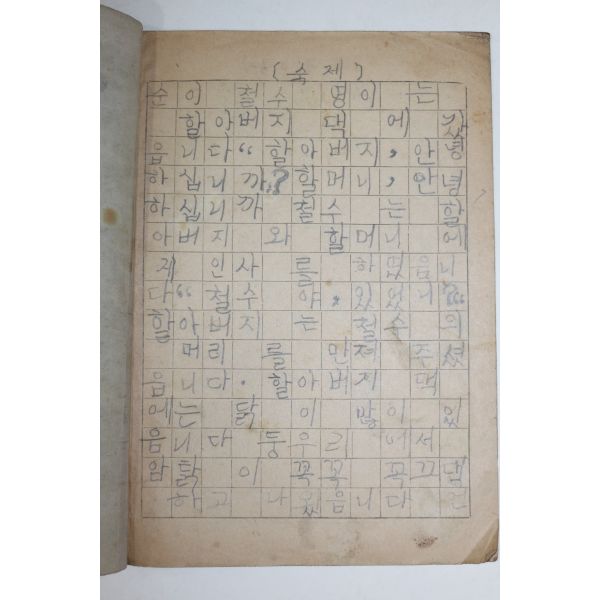 (숙제)
순이 철수 영이 는
할아버지 댁 에 갔
읍니다“ 할아버지, 안녕
하십니까? 할머니, 안녕
하십니까 철수 는 할
아버지 와 할머니 에
게 인사 를 하였읍니
다“ 철수 야, 있었니?“
할아버지 는 철수 의
머리 를 만져 주셨
읍니다. 할아버지 댁
에는 닭 이 많이 있
읍니다 둥우리 에서
암탉 이 꼭꼭 꼭끄댑
하고 나왔음니다